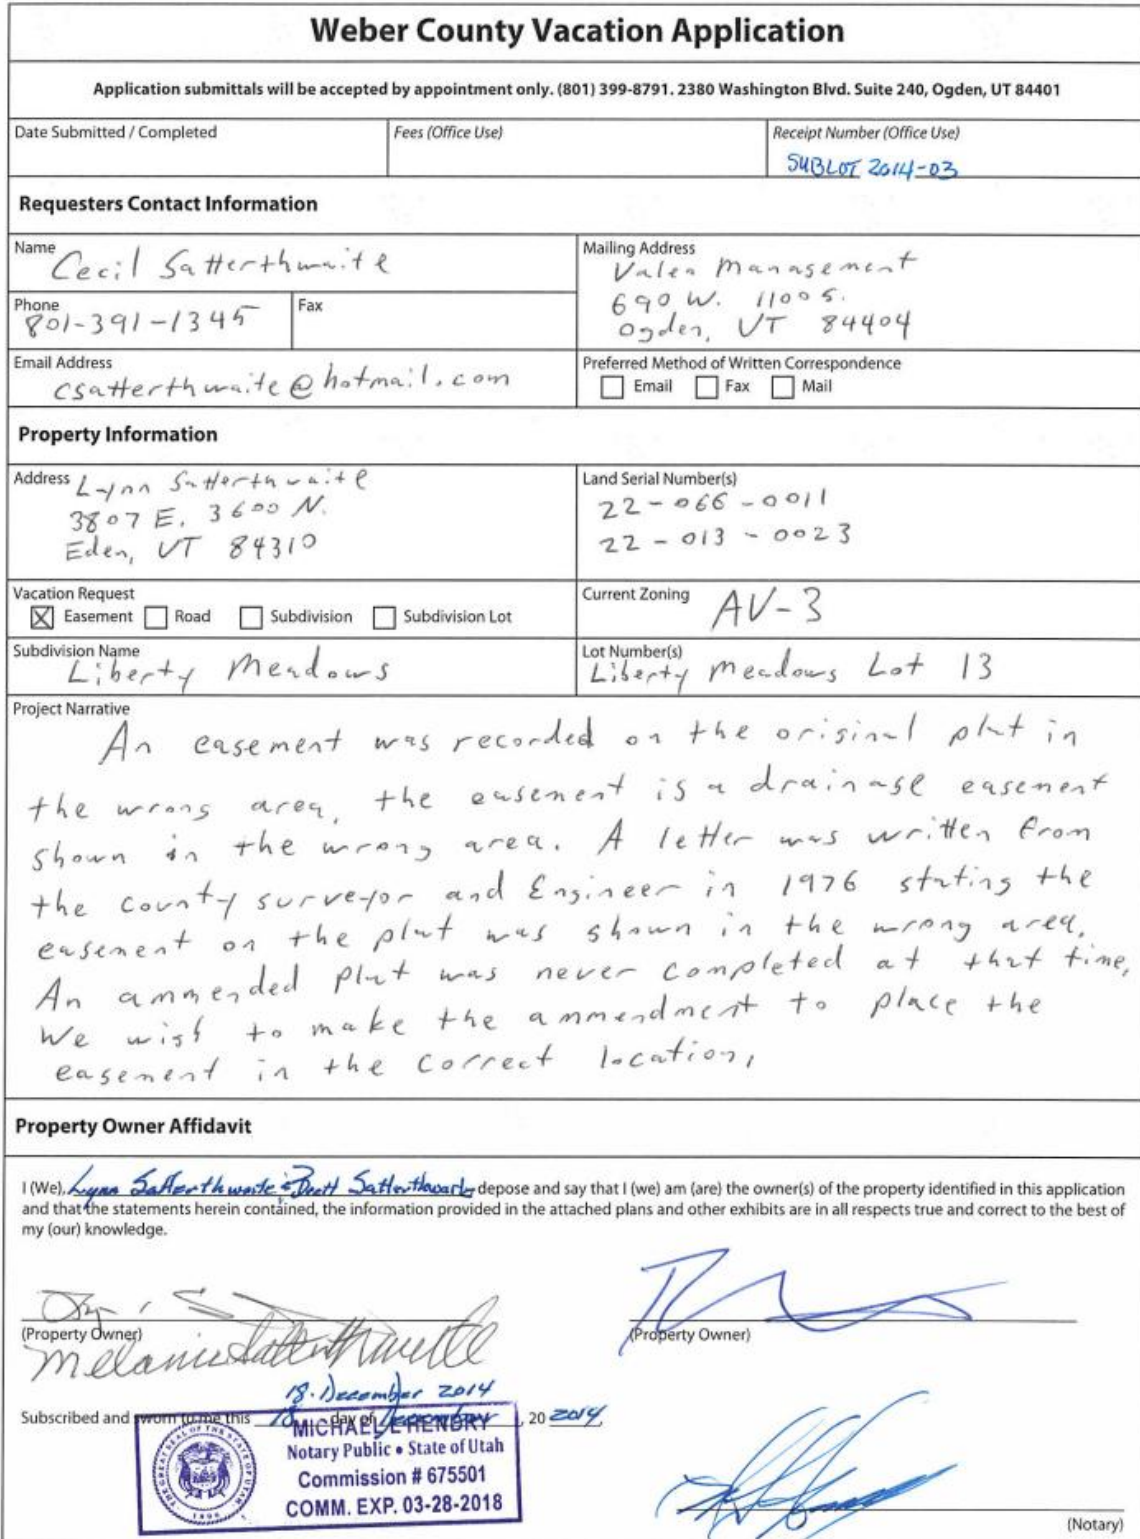 Weber County Vacation Application
Application submittals will be accepted by appointment only. (801) 399-8791. 2380 Washington Blvd. Suite 240, Ogden, UT 84401
Date Submitted / Completed
Fees (Office Use)
Receipt Number (Office Use)
SUBLOT 2014-03
Requesters Contact Information
Name
Cecil Satterthwaite
Mailing Address
Valen Management
690 W. 1100 S.
Ogden, UT 84404
Phone
801-391-1345
Fax
Email Address
csatterthwaite@hotmail.com
Preferred Method of Written Correspondence
Email Fax Mail
Property Information
Address
Lynn Satterthwaite
3807 E. 3600 N.
Eden, UT 84310
Land Serial Number(s)
22-066-0011
22-013-0023
Vacation Request
Easement Road Subdivision Subdivision Lot
Current Zoning
AV-3
Subdivision Name
Liberty Meadows
Lot Number(s)
Liberty Meadows Lot 13
Project Narrative
An easement was recorded on the original plat in
the wrong area, the easement is a drainage easement
shown in the wrong area. A letter was written from
the county surveyor and Engineer in 1976 stating the
easement on the plat was shown in the wrong area.
An ammended plat was never completed at that time.
We wish to make the ammendment to place the
easement in the correct location.
Property Owner Affidavit
I (We), Lynn Satterthwaite & Brett Satterthwaite depose and say that I (we) am (are) the owner(s) of the property identified in this application
and that the statements herein contained, the information provided in the attached plans and other exhibits are in all respects true and correct to the best of
my (our) knowledge.
(Property Owner)
(Property Owner)
Melanie Satterthwaite
18. December 2014
Subscribed and sworn to me this 18 day of December, 20 2014,
MICHAEL E HENDRY
Notary Public • State of Utah
Commission # 675501
COMM. EXP. 03-28-2018
THE GREAT SEAL OF THE STATE OF UTAH
1896
(Notary)